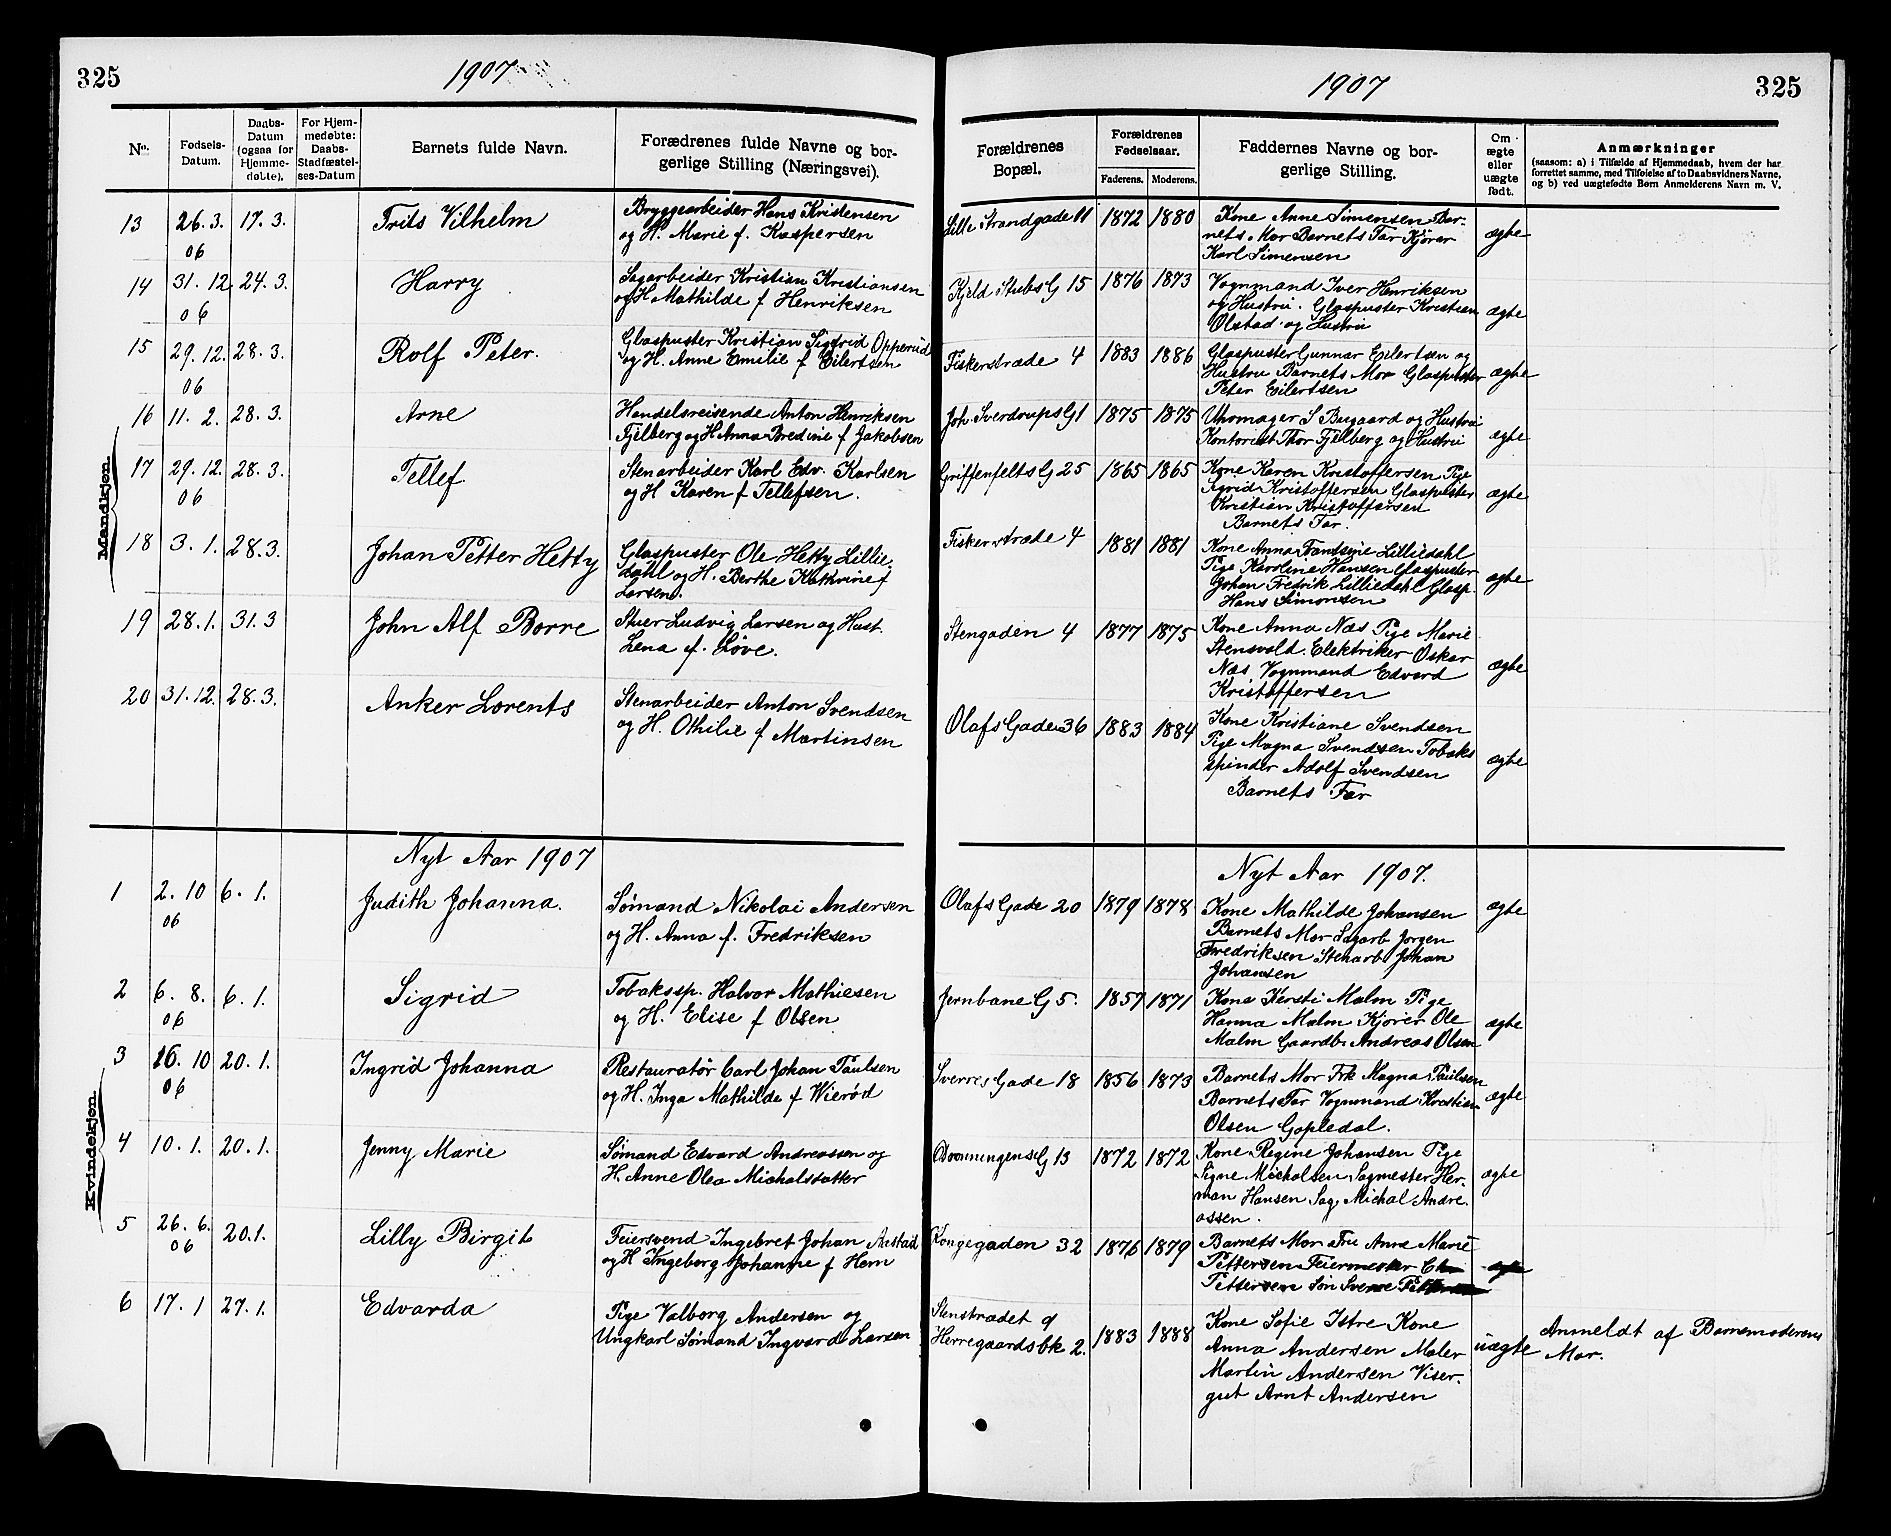 325
1907
1907
325
No.
Fødsels-
Datum.
Daabs-
Datum
(ogsaa for
Hjemme-
døbte).
For Hjem-
medøbte:
Daabs-
Stadfæstel-
ses-Datum
Barnets fulde Navn.
Forædrenes fulde Navne og bor-
gerlige Stilling (Næringsvei).
Forældrenes
Bopæl.
Forældrenes
Fødselsaar.
Faderens.
Moderens.
Faddernes Navne og bor-
gerlige Stilling.
Om
ægte
eller
uægte
født.
Anmærkninger
(saasom: a) i Tilfælde af Hjemmedaab, hvem der har
forrettet samme, med Tilføielse af to Daabsvidners Navne,
og b) ved uægtefødte Børn Anmelderens Navn m. V.
Mandkjøn.
13 26. 3. 17. 3. Frits Vilhelm Bryggearbeider Hans Kristensen Lille Strandgade 11 1872 1880 Kone Anne Simensen Bar-
06 og H. Marie f. Kaspersen nets Mor Barnets Far Kjører ægte
Karl Simensen
14 31. 12. 24. 3. Harry Sagarbeider Kristian Kristiansen Kjeld Stubs G 15 1876 1873 Vognmand Iver Henriksen
06 og H Mathilde f Henriksen og Hustru. Glaspuster Kristian ægte
Olstad og Hustru
15 29. 12. 28. 3. Rolf Peter. Glaspuster Kristian Sigfrid Opperud Fiskerstræde 4 1883 1886 Glaspuster Gunnar Eilertsen og
06 og H. Anne Emilie f Eilertsen Hustru Barnets Mor Glaspuster ægte
Peter Eilertsen
16 11. 2. 28. 3. Arne Handelsreisende Anton Henriksen Joh. Sverdrups G 1 1875 1875 Uhrmager S Bugaard og Hustru
Fjelberg og H Anna Bredine f Jakobsen Kontorist Thor Fjelberg og Hustru ægte
17 29. 12. 28. 3. Tellef. Stenarbeider Karl Edv. Karlsen Griffenfelts G 25 1865 1865 Kone Karen Kristoffersen Pige
06 og H Karen f Tellefsen. Sigrid Kristoffersen Glaspuster ægte
Kristian Kristoffersen
Barnets Far.
18 3. 1. 28. 3. Johan Petter Hetty Glaspuster Ole Hetty Lillie- Fiskerstræde 4 1881 1881 Kone Anna Frantsine Lilliedahl
dahl og H. Berthe Kathrine f Pige Karoline Hansen Glaspuster ægte
Larsen. Johan Fredrik Lilliedahl Glasp.
Hans Simonsen
19 28. 1. 31. 3 John Alf Borre Stuer Ludvig Larsen og Hust. Stengaden 4 1877 1875 Kone Anna Næs Pige Marie
Lena f. Løve. Stensvold. Elektriker Oskar ægte
Næs Vognmand Edvard
Kristoffersen
20 31. 12. 28. 3. Anker Lorents Stenarbeider Anton Svendsen Olafs Gade 36 1883 1884 Kone Kristiane Svendsen
og H. Othilie f Martinsen Pige Magna Svendsen Tobaks ægte
spinder Adolf Svendsen
Barnets Far
Nyt Aar 1907
Nyt Aar 1907.
Kvindekjøn.
1 2. 10 6. 1. Judith Johanna. Sømand Nikolai Andersen Olafs Gade 20 1879 1878 Kone Mathilde Johansen ægte
06 og H. Anna f. Fredriksen Barnets Mor Sagarb Jørgen
Fredriksen Stenarb Johan
Johansen
2 6. 8. 6. 1. Sigrid Tobakssp. Halvor Mathiesen Jernbane G 5. 1857 1871 Kone Kersti Malm Pige
06 og H. Elise f Olsen Hanna Malm Kjører Ole ægte
Malm Gaardbr Andreas Olsen
3 16. 10 20. 1. Ingrid Johanna Restauratør Carl Johan Paulsen Sverres Gade 18 1856 1873 Barnets Mor Frk Magna Paulsen
06 og H. Inga Mathilde f Wierød Barnets Far Vognmand Kristian ægte
Olsen Gopledal.
4 10. 1. 20. 1. Jenny Marie Sømand Edvard Andreassen og Dronningens G 13 1872 1872 Kone Regine Johansen Pige
H. Anne Olea Michalsdatter Signe Micholsen Sagmester Her- ægte
man Hansen Sag. Michal Andre
assen.
5 26. 6. 20. 1. Lilly Birgit Feiersvend Ingebret Johan Aastad Kongegaden 32 1876 1879 Barnets Mor Fru Anna Marie
06 og H Ingeborg Johanne f Hem Pettersen Feiermester
Pettersen Søn Svene
6 17. 1 27. 1. Edvarda Pige Valborg Andersen og Stenstrædet 9 1883 1888 Kone Sofie Istre Kone
Ungkarl Sømand Ingvard Larsen Herregaardsbk 2. Anna Andersen Maler uægte Anmeldt af Barnemoderens
Martin Andersen Viser- Mor.
gut Arnt Andersen